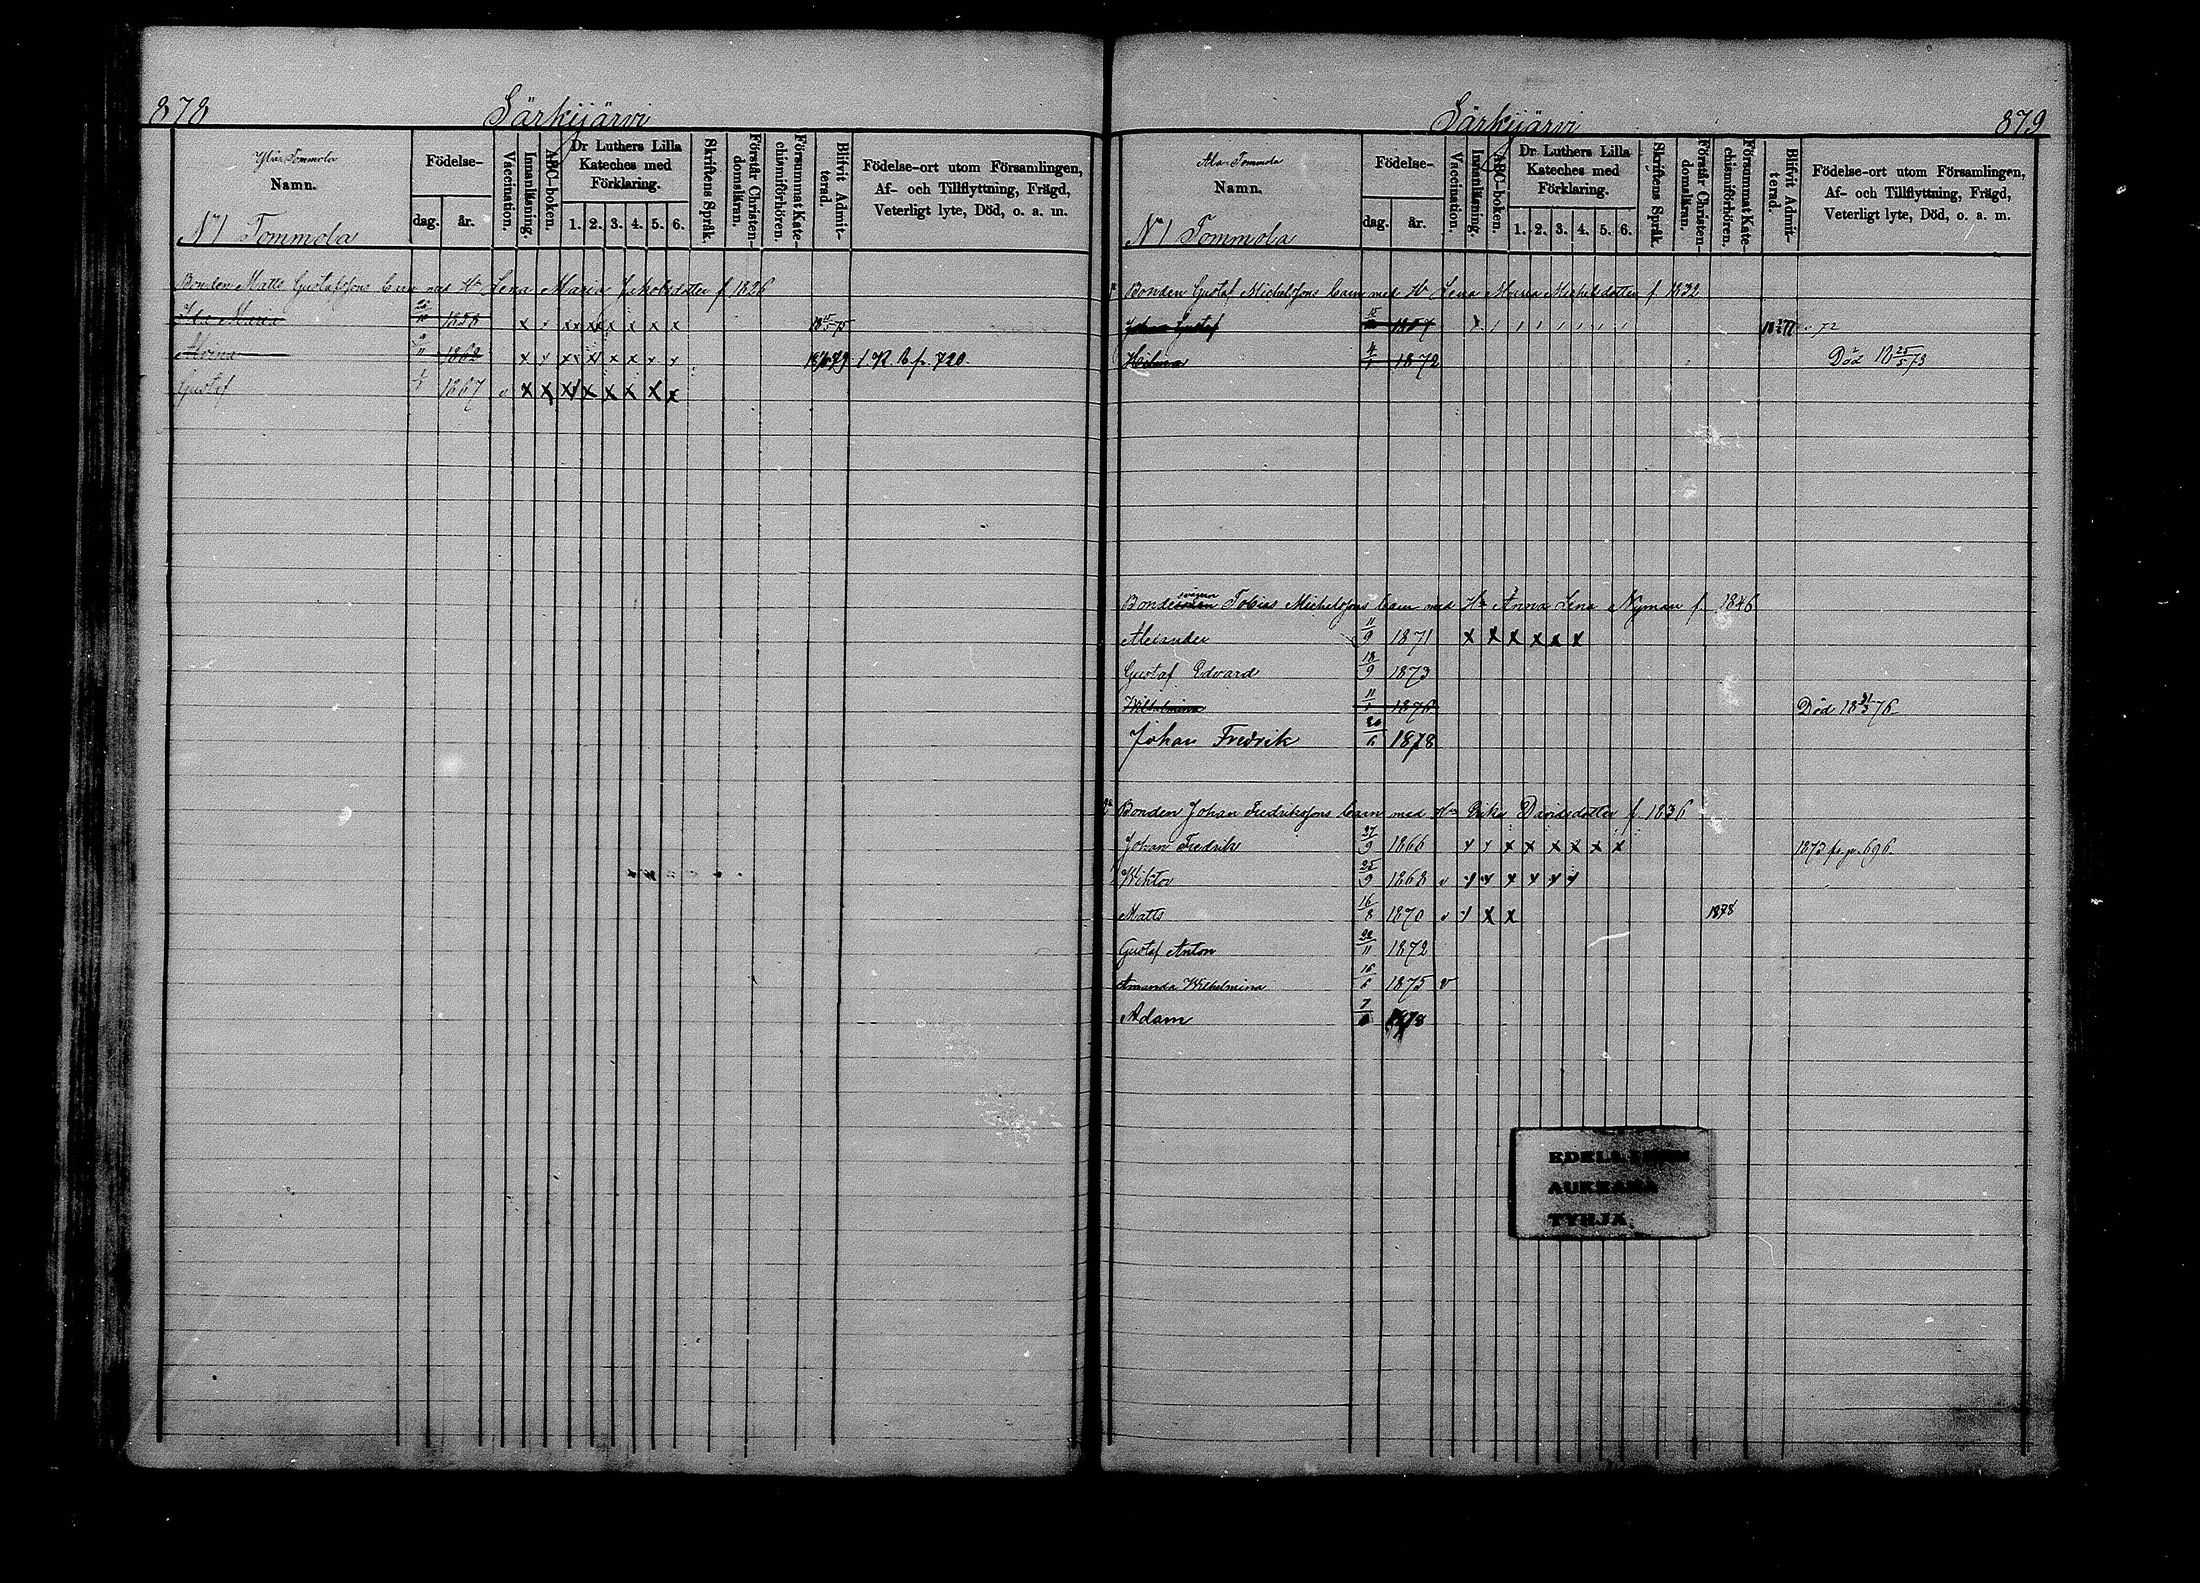 878 Särkijärvi
Ylä-Tommola
Namn.
Födelse-
dag. år.
Vaccination.
Innanläsning.
ABC-boken.
Dr Luthers Lilla
Kateches med
Förklaring.
1. 2. 3. 4. 5. 6.
Skriftens Språk.
Förstår Christen-
domsläran.
Försummat Kate-
chismiförhören.
Blifvit Admit-
terad.
Födelse-ort utom Församlingen,
Af- och Tillflyttning, Frägd,
Veterligt lyte, Död, o. a. m.
No 1 Tommola
Bonden Matts Gustafssons barn med Hu Lena Maria Jakobsdotter f 1826
Ida Maria 1858 x x x x x x x x
Alvina 9/11 1862 x x x x x x x x 1879 p. 720.
Gustaf 1/1 1867 v x x x x x x x x
Särkijärvi 879
Ala-Tommola
Namn.
Födelse-
dag. år.
Vaccination.
Innanläsning.
ABC-boken.
Dr Luthers Lilla
Kateches med
Förklaring.
1. 2. 3. 4. 5. 6.
Skriftens Språk.
Förstår Christen-
domsläran.
Försummat Kate-
chismiförhören.
Blifvit Admit-
terad.
Födelse-ort utom Församlingen,
Af- och Tillflyttning, Frägd,
Veterligt lyte, Död, o. a. m.
No 1 Tommola
Bonden Gustaf Michelssons barn med Hu Lena Maria Michelsdotter f. 1832
Johan Gustaf 1857
Hilma 4/1 1872 Död 18 25/5 73
Tobias Michelssons barn med Hu Anna Lena Nyman f. 1846
Alexander 11/9 1871 x x x x x x
Gustaf Edvard 18/9 1873
Wilhelmina 11/1 1876 Död 76
Johan Fredrik 20/6 1878
Bonden Johan Fredrikssons barn med Hu Erika Davidsdotter f. 1836
Johan Fredrik 27/9 1866 x x x x x x x x 1873 p. 696.
Wiktor 25/9 1868 v x x x x x x
Matts 16/8 1870 v x x x 1878
Gustaf Anton 22/11 1872
Amanda Wilhelmina 16/6 1875 v
Adam 1878
EDELLINEN
AUKEAMA
TYHJÄ